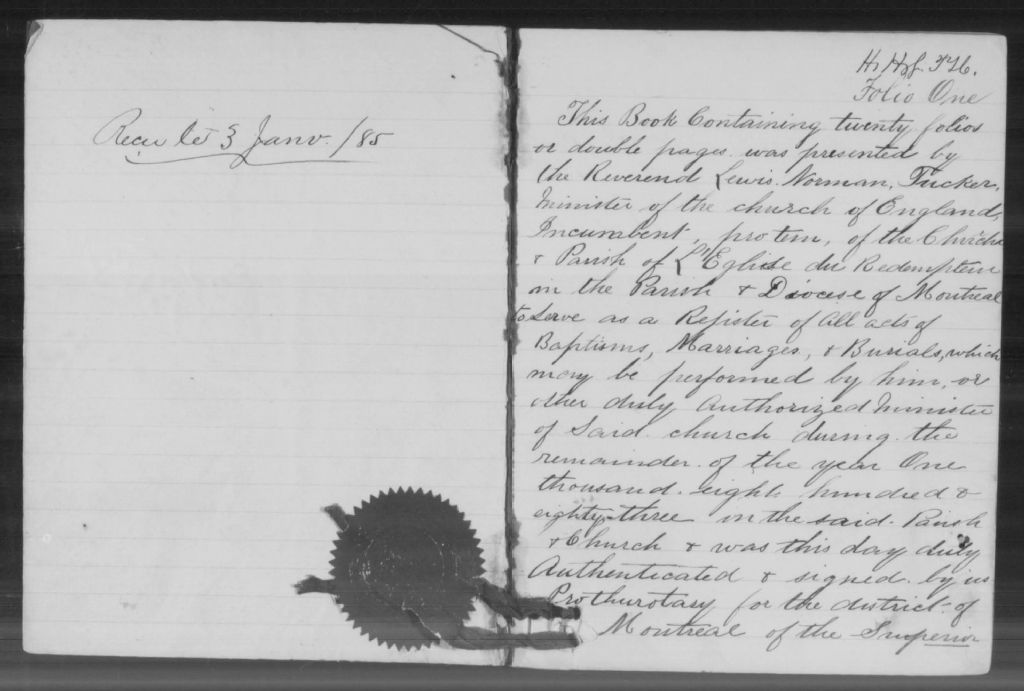 Recu le 3 Janv. /85
Folio One
This Book Containing twenty folios
or double pages was presented by
the Reverend Lewis Norman, Tucker,
Minister of the church of England,
Incumbent, pro tem, of the Church
& Parish of L'Eglise du Redempteur
in the Parish & Diocese of Montreal
to serve as a Register of all acts of
Baptisms, Marriages, & Burials, which
may be performed by him, or
other duly Authorized Minister
of Said church during the
remainder of the year One
thousand eight hundred &
eighty-three in the said Parish
& Church & was this day duly
Authenticated & signed by us
Prothurotary for the district of
Montreal of the Superior